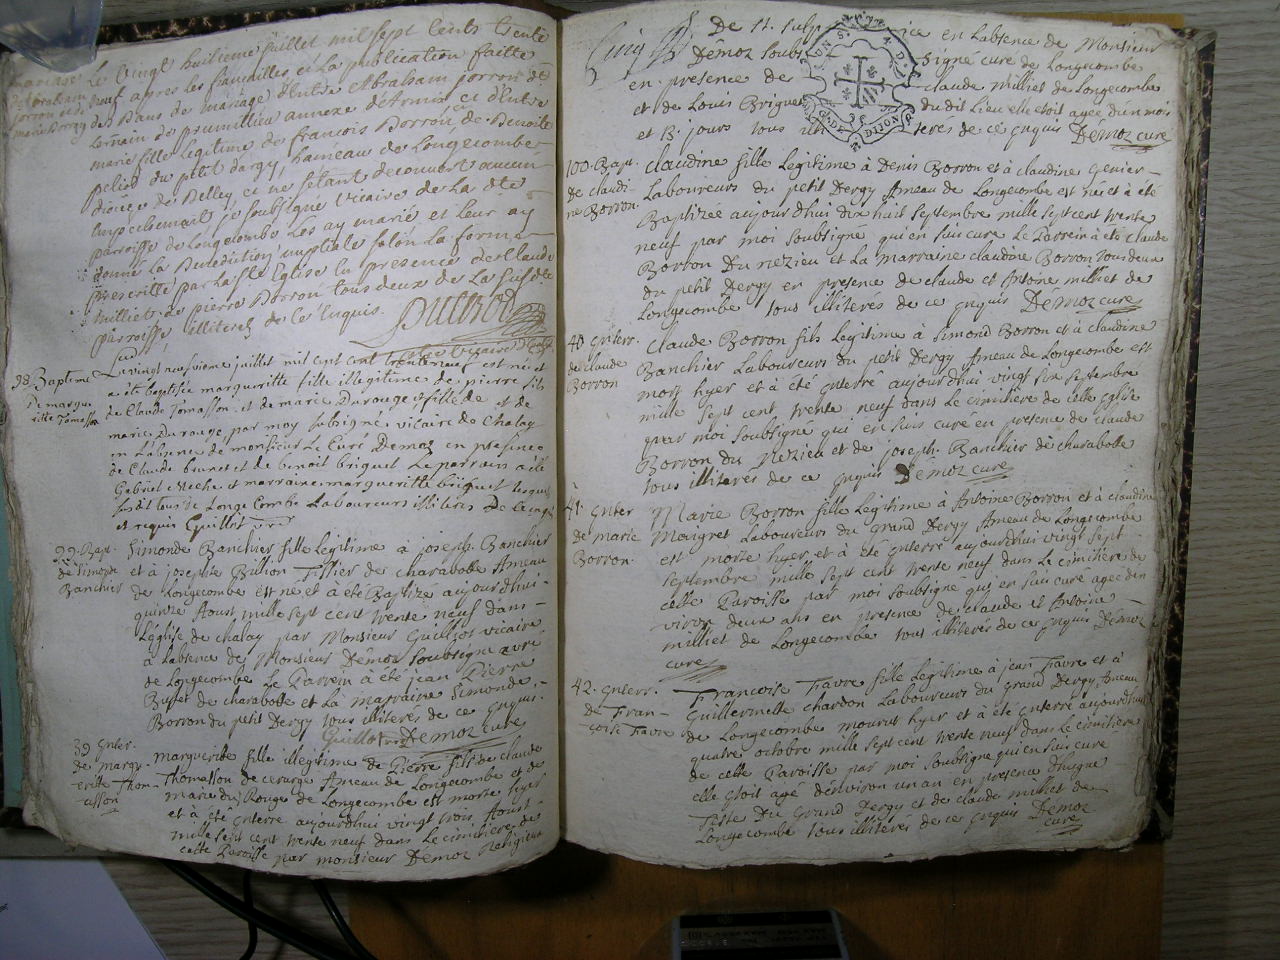 Le vingt huitieme juillet mil sept cents trente
neuf apres les fiancailles et La publication faitte
des Bans de mariage d'Entre Abraham Borron de
marie fille legitime de francois Borron de Benoite
pelien du petit dargy, hameau de Longecombe
diocese de Belley, et ne setant decouvert aucun
empechement je soubsigne vicaire de La dte
parroisse de Longecombe Les ay marié et leur ay
donné La Benediction nuptiale selon La forme
prescritte par La Ste Eglise En presence de Claude
Milliet de pierre Borron tous deux de La susdte
parroisse, illiteres de ce Enquis.
98 Bapteme
De margue
ritte Tomasson
Le vingt neufvieme juillet mil cent cent trente neuf est né et
a eté baptisée margueritte fille illegitime de pierre fils
de Claude Tomasson et de marie Durouge, fille de et de
marie Durouge, par moy soubsigné vicaire de Chalay
en L'absence de monsieur Le Curé Demoz en presence
de Claude brunet et de benoit briguet Le parrain a eté
Gabriel et marraine margueritte briguet
susdit tous de Longe Combe Laboureurs illiteres De
et requis Guillot
99. Bap.
de Simonde
Banchier
Simonde Banchier fille Legitime a joseph Banchier
et à josephte Bullion Tissier de charabotte Ameau
de Longecombe est né et à eté Baptizé aujourdhui
quinze Aoust mille sept cent trente neuf dans
L'église de chalay par Monsieur Guillot vicaire
à Labsence de Monsieur Démoz soubsigné curé
de Longecombe Le Parrein à été jean Pierre
Buget de charabotte et La marraine Simonde
Borron du petit Dergy tous illiterés de ce Enquis
Guillot Demoz curé
39 Enter.
de marg-
erite Thom-
asson
marguerite fille illegitime de Pierre fils de claude
Thomasson de cerarge Ameau de Longecombe et de
marie du Rouge de Longecombe est morte hyer
et à été Enterré aujourdhui vingt trois Aoust
mille sept cent trente neuf dans Le cimitiere de
cette Paroisse par monsieur Démoz Religieux
De St. Sulpice en Labsence de Monsieur
Demoz Soubsigné curé de Longecombe
en presence de claude milliet de Longecombe
et de Louis Briguet du dit Lieu elle etoit agée d'un mois
et 13. jours tous illiterés de ce Enquis Demoz curé
100. Bap.
de claudi-
ne Borron.
claudine fille Legitime à Denis Borron et à claudine Genier
Laboureurs du petit Dergy Ameau de Longecombe est née et à eté
Baptizée aujourdhui dix huit septembre mille sept cent trente
neuf par moi soubsigné qui en suis curé Le Parrein à été claude
Borron Du Nezieu et La marraine claudine Borron tous deux
du petit Dergy en presence de claude et Antoine milliet de
Longecombe tous illiterés de ce Enquis Demoz curé
40 Enterr.
de claude
Borron
Claude Borron fils Legitime à Simond Borron et à claudine
Banchier Laboureurs du petit Dergy Ameau de Longecombe est
mort hyer et à été Enterré aujourdhui vingt six septembre
mille sept cent, trente neuf dans Le cimitiere de cette Eglise
par moi soubsigné qui en suis curé en presence de claude
Borron du Nezieu et de joseph Banchier de charabotte
tous illiterés de ce Enquis Demoz curé
41. Enter
de marie
Borron.
Marie Borron fille Legitime à Antoine Borron et à claudine
Maigret Laboureurs du grand Dergy Ameau de Longecombe
est morte hyer et à été Enterré aujourdhui vingt sept
septembre mille sept cent trente neuf dans Le cimitiere de
cette Paroisse par moi soubsigné qui en suis curé agée den
viron deux ans en presence de claude et Antoine
milliet de Longecombe tous illiterés de ce Enquis Demoz
curé
42. Enterr.
de Fran-
çoise Favre
Francoise Favre fille Legitime à jean Favre et à
Guillermette chardon Laboureurs du grand Dergy Ameau
de Longecombe mourut hyer et à été Enterré aujourdhui
quatre octobre mille sept cent trente neuf dans le cimitiere
de cette Paroisse par moi soubsigné qui en suis curé
elle Etoit agé d'environ un an en presence d'hugue
Teste Du Grand Dergy et de claude milliet de
Longecombe tous illiterés de ce Enquis Demoz
curé